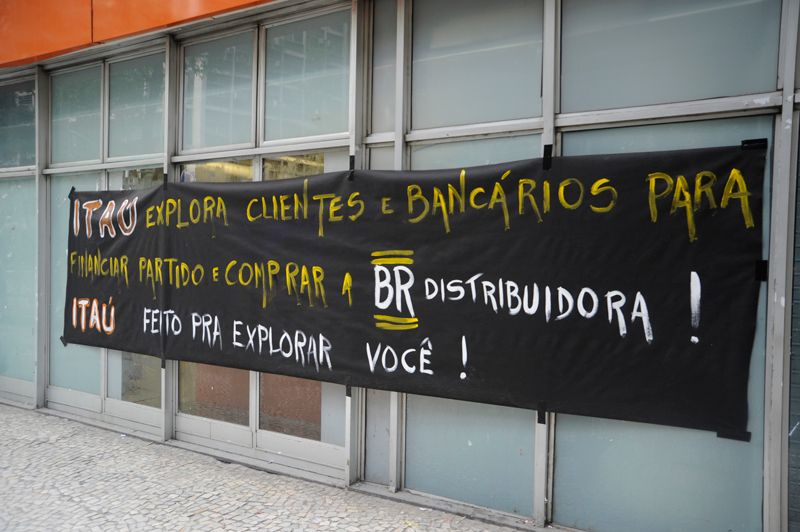 ITAÚ EXPLORA CLIENTES E BANCÁRIOS PARA
FINANCIAR PARTIDO E COMPRAR A BR DISTRIBUIDORA !
ITAÚ FEITO PRA EXPLORAR VOCÊ !